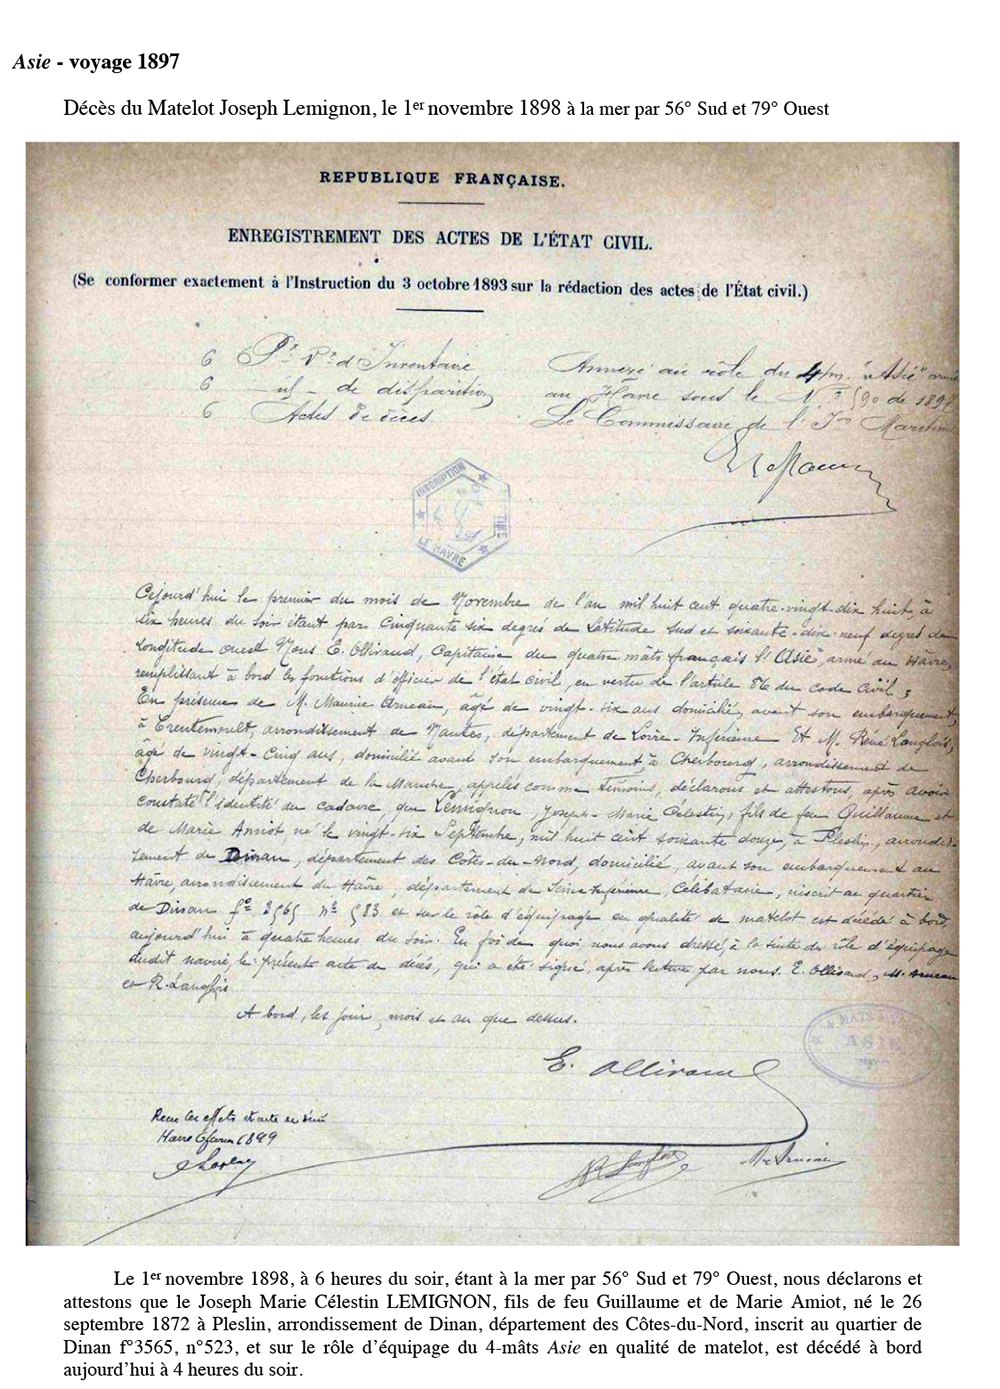 Asie - voyage 1897
Décès du Matelot Joseph Lemignon, le 1er novembre 1898 à la mer par 56° Sud et 79° Ouest
REPUBLIQUE FRANÇAISE.
ENREGISTREMENT DES ACTES DE L'ÉTAT CIVIL.
(Se conformer exactement à l'Instruction du 3 octobre 1893 sur la rédaction des actes de l'État civil.)
6 Ps Vx d'Inventaire
6 — id — de disparition
6 Actes de décès
Annexé au rôle du 4/m. "Asie" armé
au Havre sous le No 590 de 1897
Le Commissaire de l'Ion Maritime
INSCRIPTION
LE HAVRE
Cejourd'hui le premier du mois de Novembre de l'an mil huit cent quatre-vingt-dix huit, à
six heures du soir étant par Cinquante six degrés de Latitude Sud et soixante-dix-neuf degrés de
Longitude ouest Nous E. Ollivaud, Capitaine du quatre mâts français l'"Asie", armé au Hâvre,
remplissant à bord les fonctions d'officier de l'état civil, en vertu de l'article 86 du code civil ;
En présence de M. Maurice Arneau, âgé de vingt-six ans domicilié, avant son embarquement,
à Trentemoult, arrondissement de Nantes, département de Loire-Inférieure Et M. René Langlois,
âgé de vingt-Cinq ans, domicilié avant son embarquement, à Cherbourg, arrondissement de
Cherbourg, département de la Manche, appelés comme témoins, déclarons et attestons, après avoir
constaté l'identité du cadavre, que Lemignon, Joseph-Marie Célestin, fils de feu Guillaume et
de Marie Amiot né le vingt-six Septembre, mil huit cent soixante douze, à Pleslin, arrondis-
sement de Dinan, département des Côtes-du-Nord, domicilié, avant son embarquement au
Hâvre, arrondissement du Hâvre, département de Seine Inférieure, Célibataire, inscrit au quartier
de Dinan fo 3565 no 523 et sur le rôle d'équipage en qualité de matelot est décédé à bord,
aujourd'hui à quatre heures du soir. En foi de quoi nous avons dressé, à la suite du rôle d'équipage
dudit navire, le présente acte de décès, qui a été signé, après lecture par nous. E. Ollivaud, M. Arneau
et R. Langlois
A bord, les jour, mois et an que dessus.
4 MATS
ASIE
E. Ollivaud
Havre 1899
Le 1er novembre 1898, à 6 heures du soir, étant à la mer par 56° Sud et 79° Ouest, nous déclarons et
attestons que le Joseph Marie Célestin LEMIGNON, fils de feu Guillaume et de Marie Amiot, né le 26
septembre 1872 à Pleslin, arrondissement de Dinan, département des Côtes-du-Nord, inscrit au quartier de
Dinan f°3565, n°523, et sur le rôle d'équipage du 4-mâts Asie en qualité de matelot, est décédé à bord
aujourd'hui à 4 heures du soir.